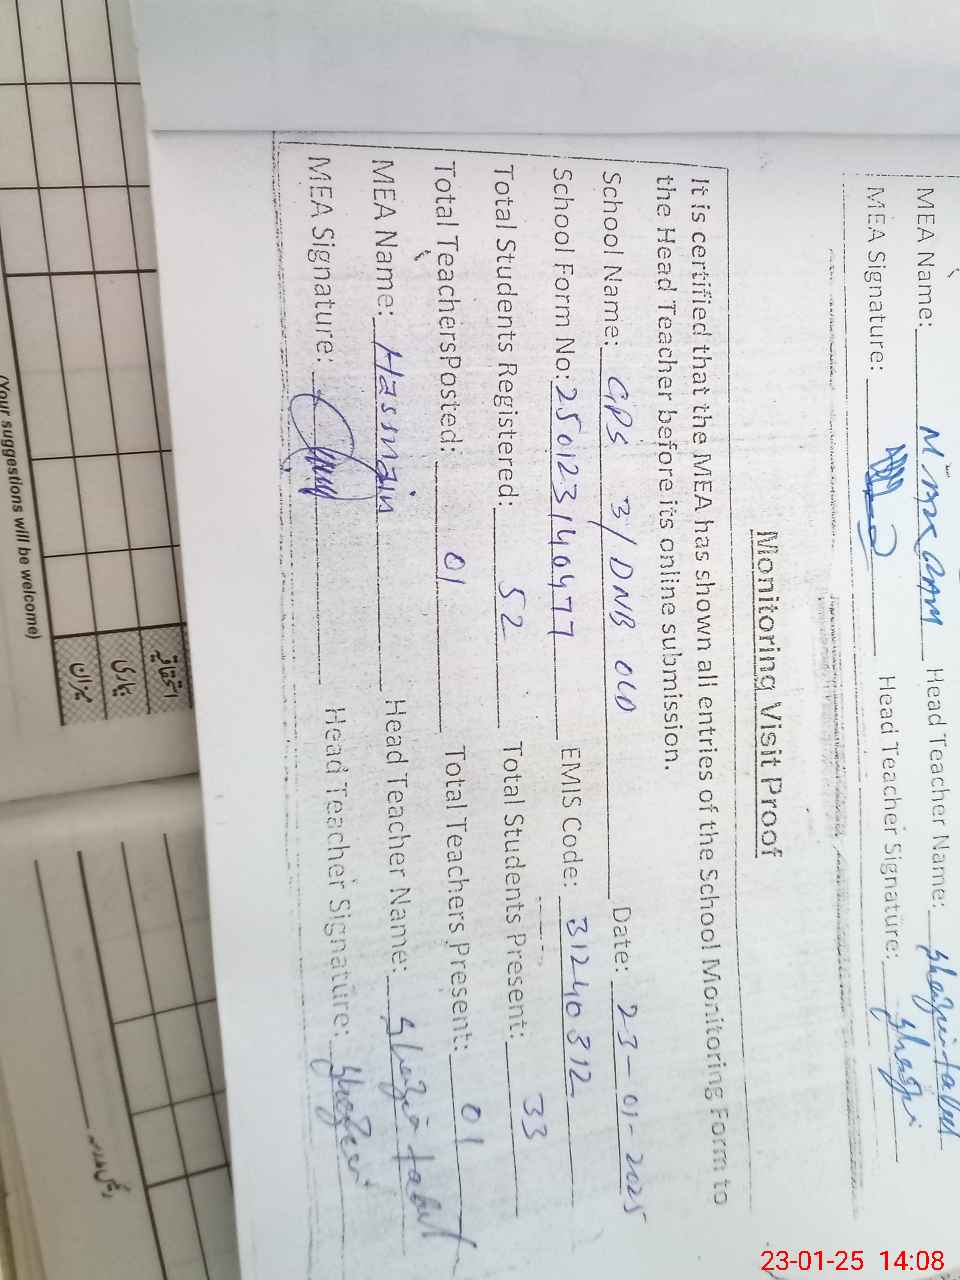 MEA Name: M. Head Teacher Name:
MEA Signature: Head Teacher Signature:
Monitoring Visit Proof
It is certified that the MEA has shown all entries of the School Monitoring Form to
the Head Teacher before its online submission.
School Name: GPS 3/DNB OLD Date: 23-01-2025
School Form No: 250123140477 EMIS Code: 31240312
Total Students Registered: 52 Total Students Present: 33
Total TeachersPosted: 01 Total Teachers Present: 01
MEA Name: Hassnain Head Teacher Name:
MEA Signature: Head Teacher Signature:
(Your suggestions will be welcome)
میزان
23-01-25 14:08